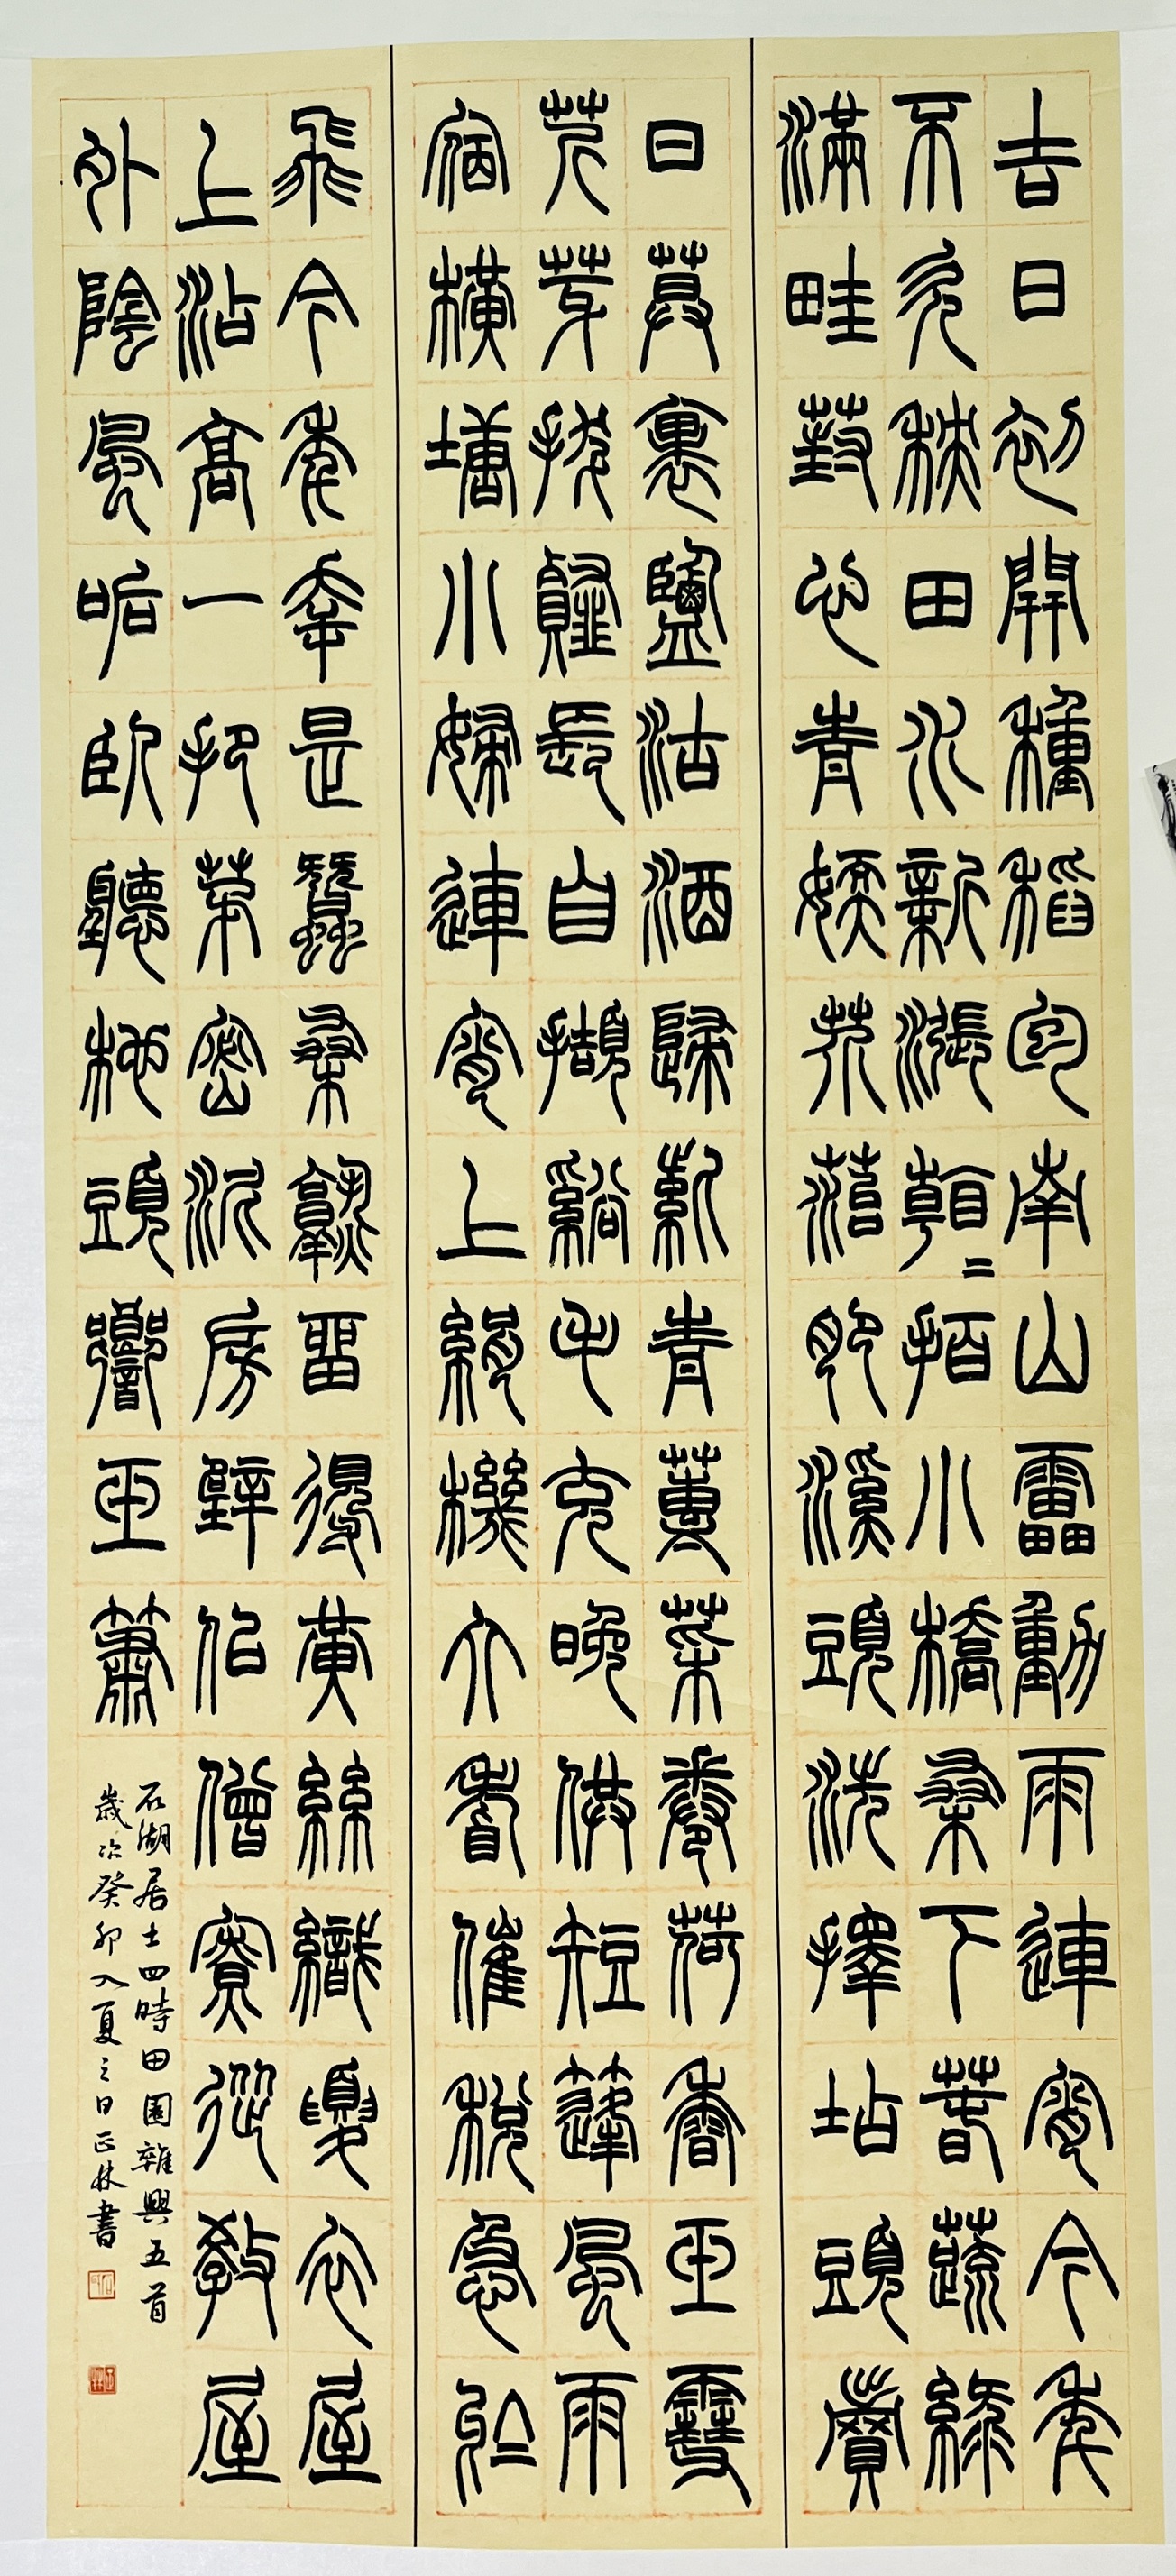 吉日初開種稻包南山靁動雨連宵今年
不欠秧田水新漲看=拍小橋桑下春蔬綠
滿畦葑心青嫩芥菭肥溪頭洗擇坫頭賣
日暮裹鹽沽酒歸紫青蓴菜卷荷香玉雪
芹芽拔薤長自擷谿毛充晚供短篷風雨
宿橫塘小婦連宵上絹機大耆催稅急於
飛今年幸是蠶桑熟留得黃絲織夏衣屋
上添高一把茅密泥房壁似僧寮從教屋
外陰風吼臥聽籬頭響玉簫
石湖居士四時田園雜興五首
歲次癸卯入夏之日正林書